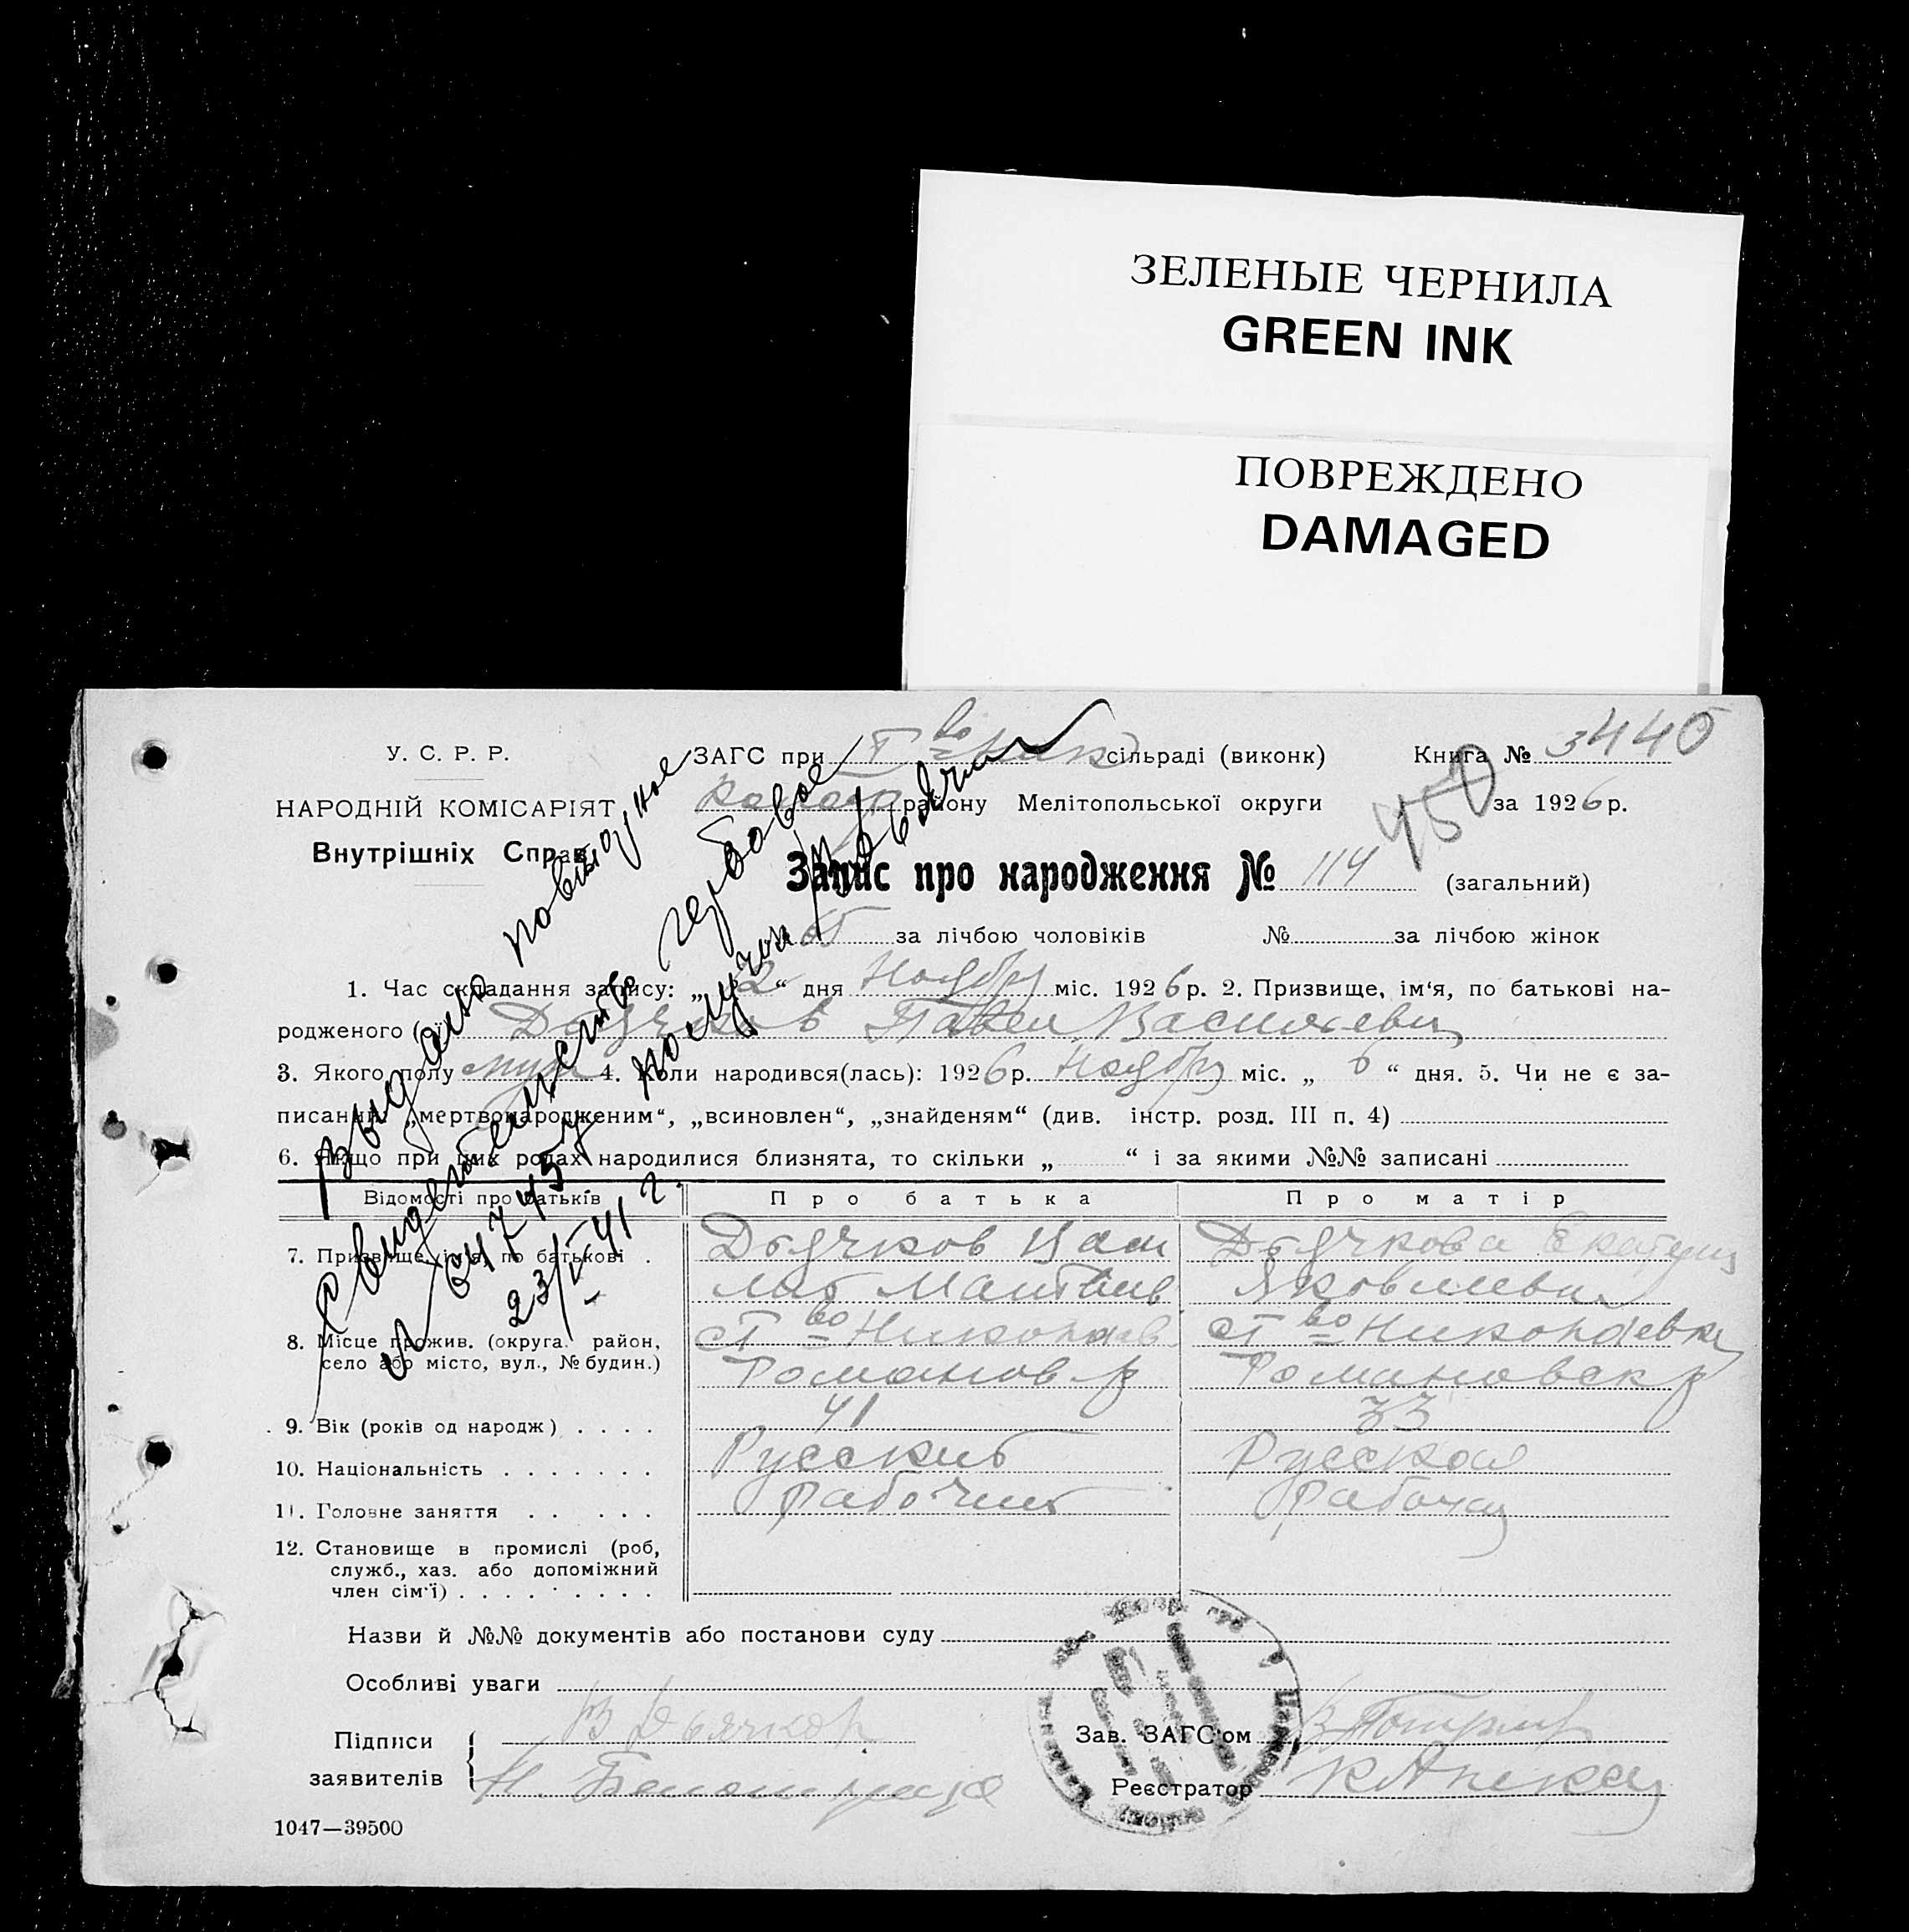 ЗЕЛЕНЫЕ ЧЕРНИЛА
GREEN INK
ПОВРЕЖДЕНО
DAMAGED
У. С. Р. Р.
НАРОДНІЙ КОМІСАРІЯТ
Внутрішніх Справ
ЗАГС при сільраді (виконк) Книга № 3440
району Мелітопольської округи за 1926 р.
450
Запис про народження № 114 (загальний)
за лічбою чоловіків № за лічбою жінок
1. Час складання запису: „ 2 “ дня Ноябр міс. 1926 р. 2. Призвище, ім'я, по батькові на-
родженого ( Павел Василевич
3. Якого полу муж 4. Коли народився(лась): 1926 р. Ноябр міс. „ 6 “ дня. 5. Чи не є за-
писаний „мертвонародженим“, „всиновлен“, „знайденям“ (див. інстр. розд. III п. 4)
6. Якщо при цих родах народилися близнята, то скільки „ “ і за якими №№ записані
Відомості про батьків Про батька Про матір
7. Призвище, ім'я, по батькові Дьячков Дьячкова
Яковлевна
8. Місце прожив. (округа район, ст во Ст во Николаевка
село або місто, вул., № будин.) Романов р Романовск р
9. Вік (років од народж) 41 33
10. Національність Русский Русская
11. Головне заняття Рабочий Рабочая
12. Становище в промислі (роб,
служб., хаз. або допоміжний
член сім'ї)
Назви й №№ документів або постанови суду
Особливі уваги
Підписи В Дьячков Зав. ЗАГС'ом
заявителів Н. Реєстратор
1047—39500
Выдано повторное
свидетельство гербовое
получил
23/V-41 г.